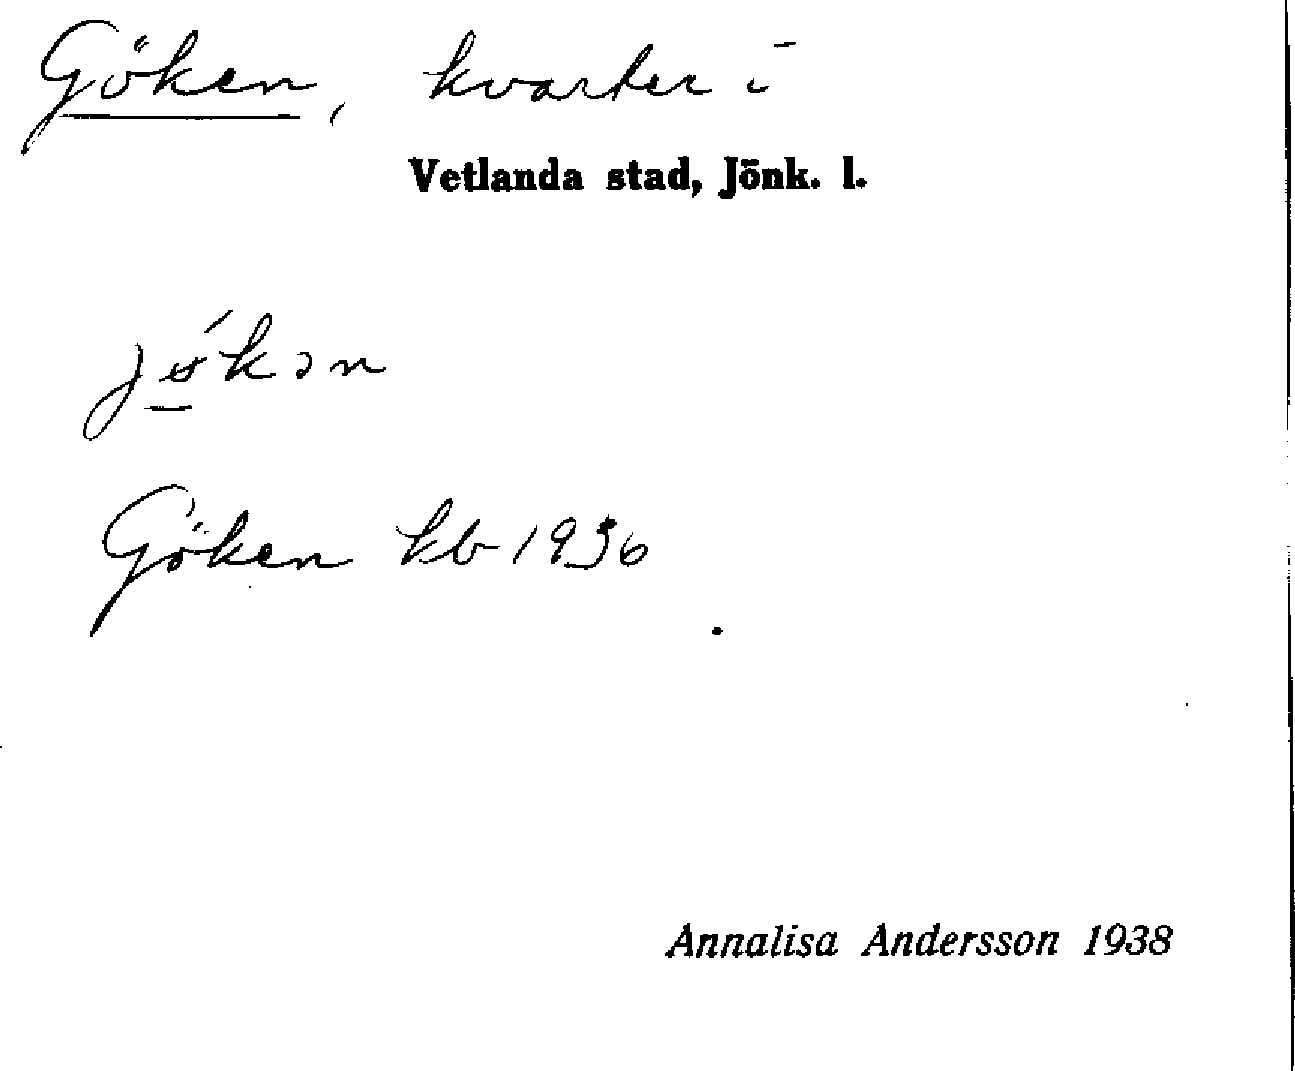 Göken, kvarter i
Vetlanda stad, Jönk. l.
jǿ̲kən
Göken kb 1936
Annalisa Andersson 1938